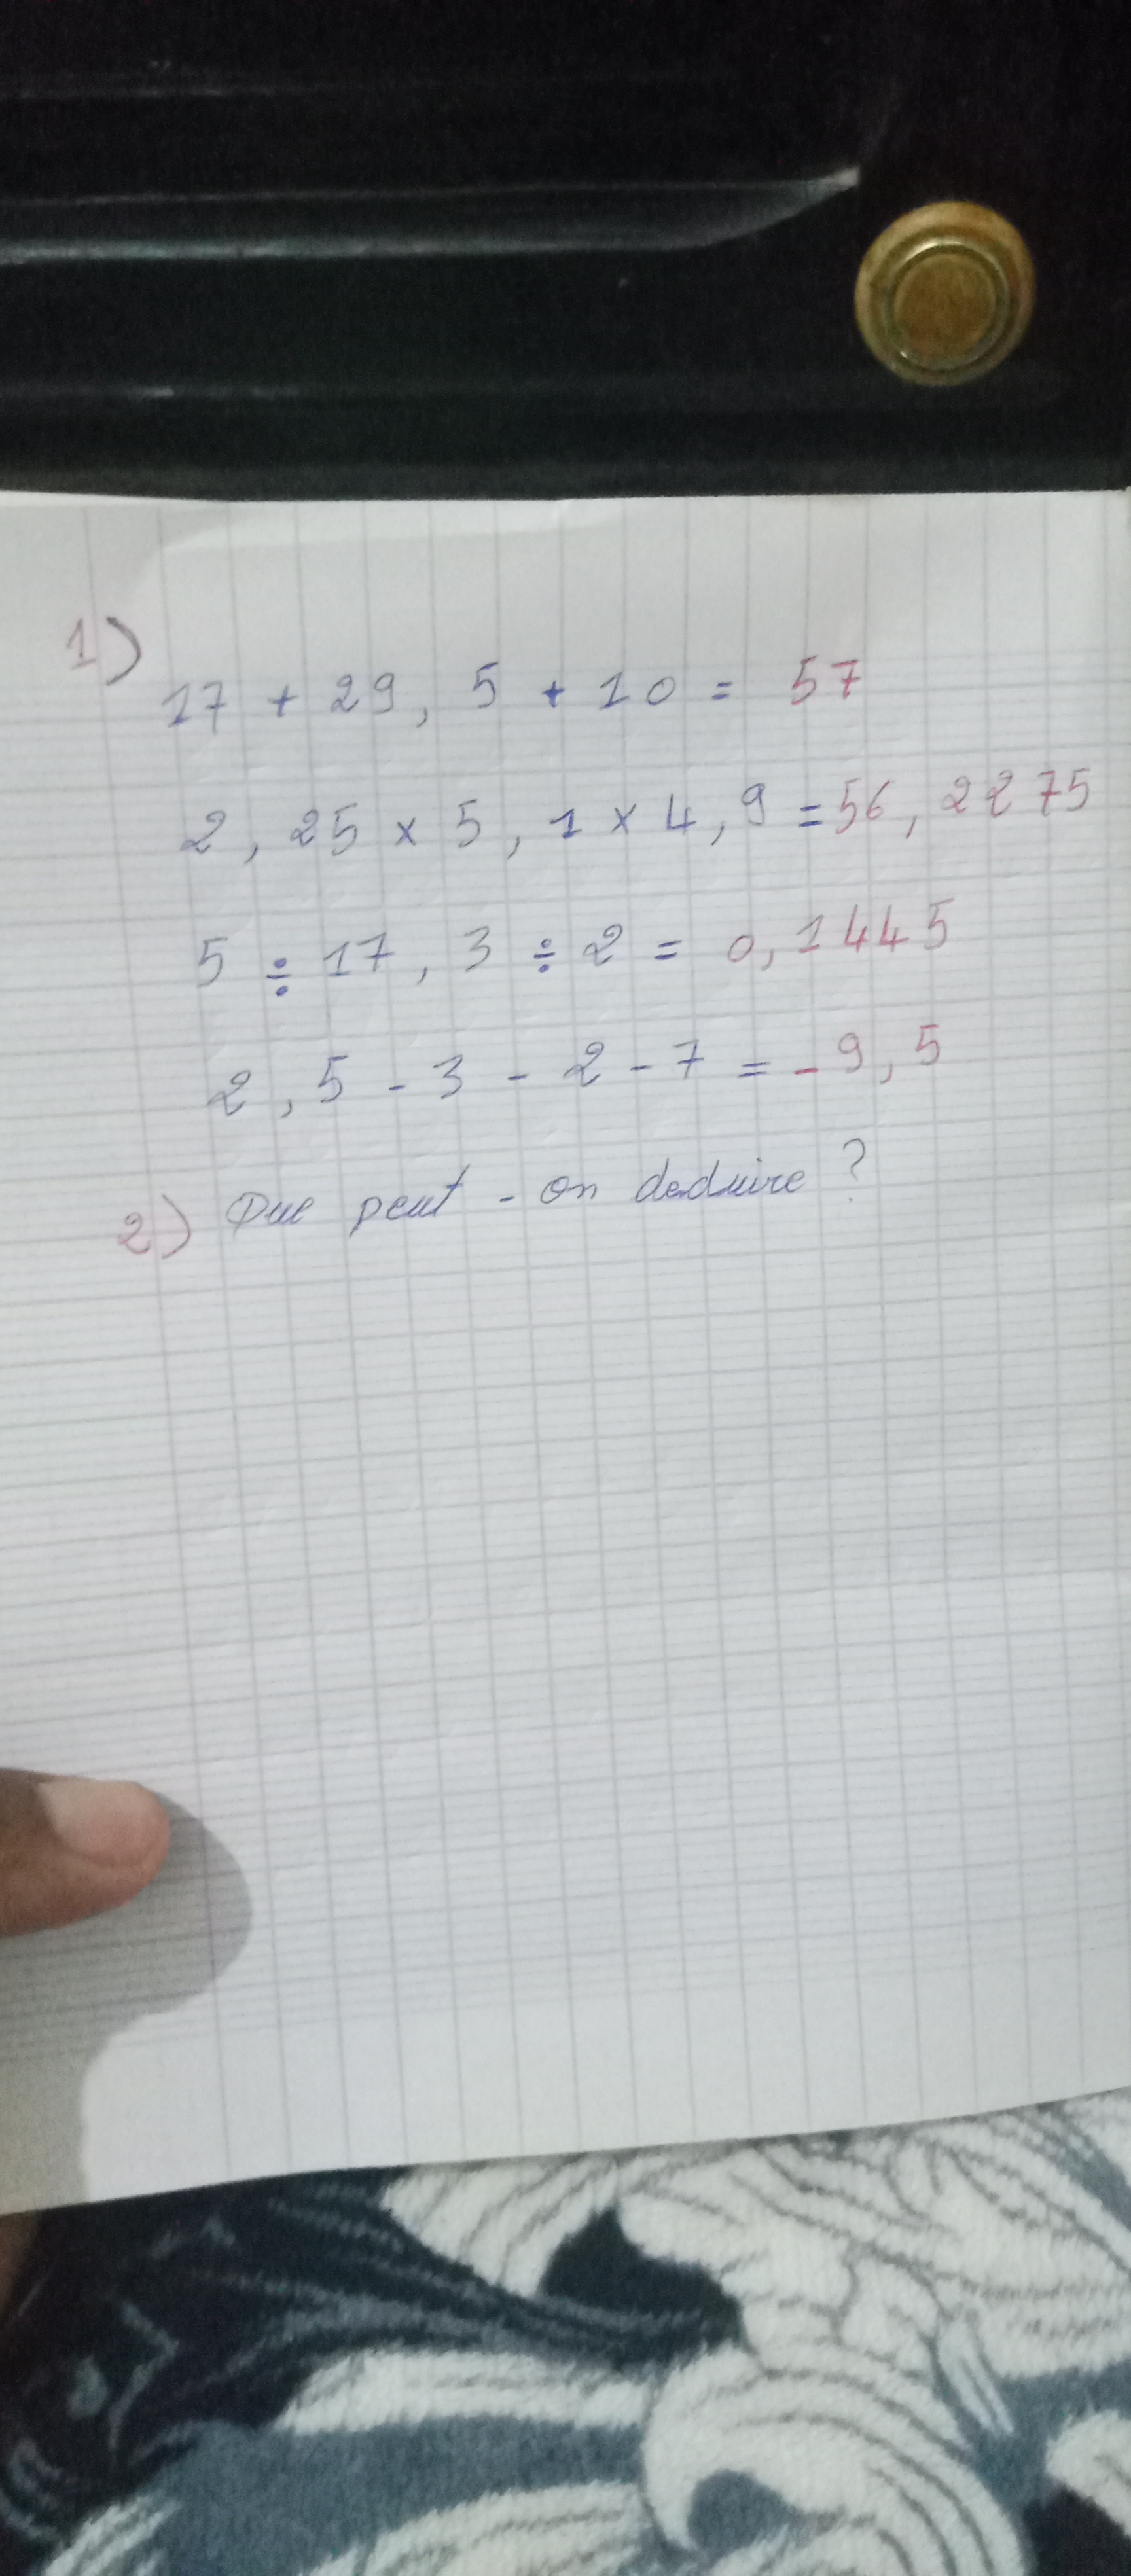 1)
17 + 29, 5 + 10 = 57
2, 25 × 5, 1 × 4, 9 = 56, 2275
5 ÷ 17, 3 ÷ 2 = 0, 1445
2, 5 - 3 - 2 - 7 = - 9, 5
2) Que peut - on deduire ?